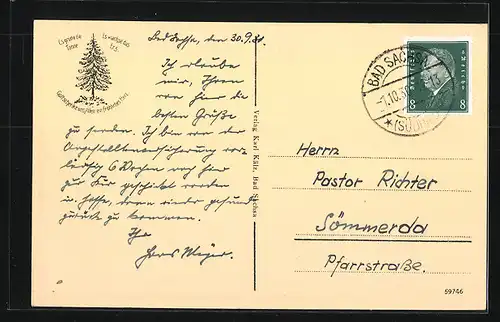 Es grüne die Tanne
Es wachse das Erz
Gott schenke uns allen ein fröhliches Herz
Bad Sachsa, den 30.9.30.
Ich erlaube
mir, Ihnen
von hier die
besten Grüße
zu senden. Ich bin von der
Angestelltenversicherung vor-
läufig 6 Wochen nach hier
zur Kur geschickt worden
u. hoffe, dann wieder gesund
zurück zu kommen.
Ihr
Hans Meyer.
Verlag Karl Külz, Bad Sachsa
BAD SACHSA
-1.10.30
*(SÜDHARZ)
Deutsches Reich
8 8
Herrn
Pastor Richter
Sömmerda
Pfarrstraße.
59746